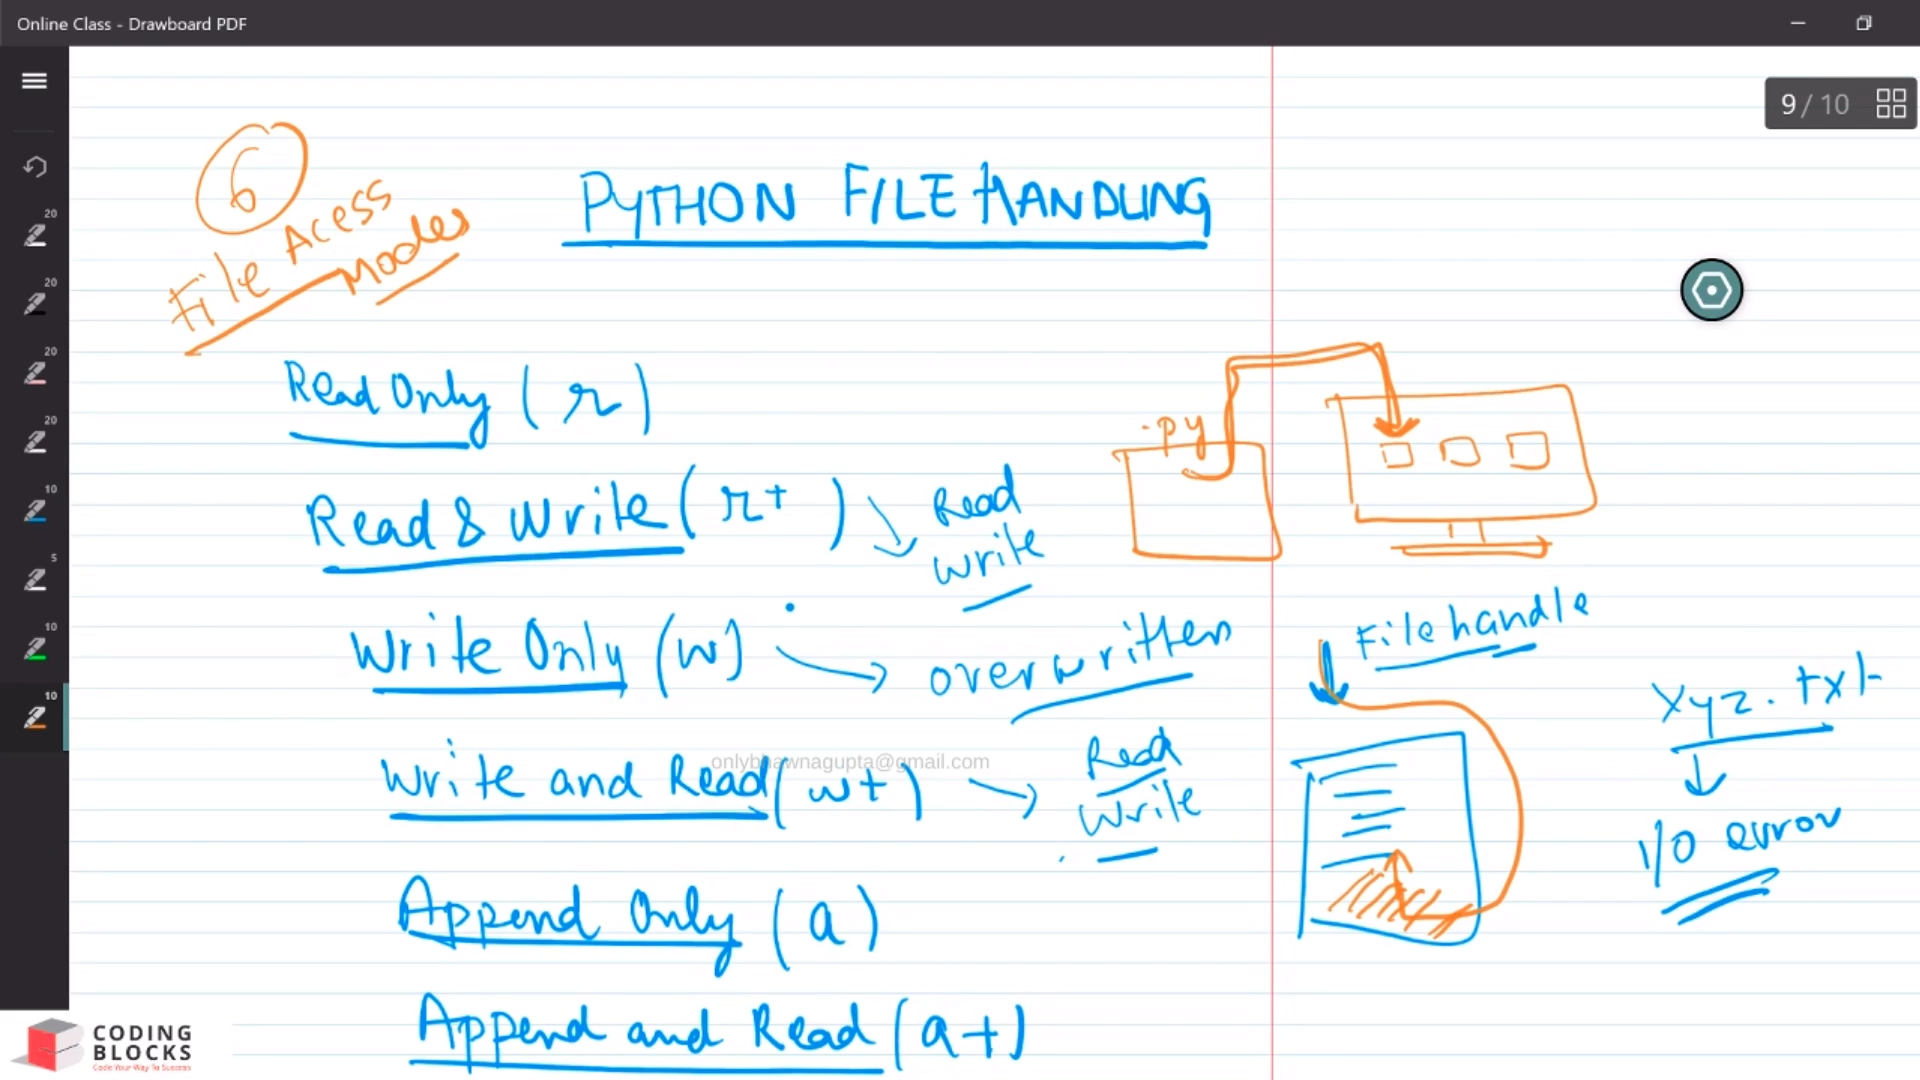 Online Class - Drawboard PDF
9 / 10
20
20
20
20
10
5
10
10
6
File Acess
Modes
PYTHON FILE HANDLING
Read Only (r)
Read & Write (r+)
Read
Write
.py
Write Only (w)
overwritten
File handle
xyz.txt
I/O error
Write and Read (w+)
Read
Write
onlybhawnagupta@gmail.com
Append Only (a)
Append and Read (a+)
CODING
BLOCKS
Code Your Way To Success